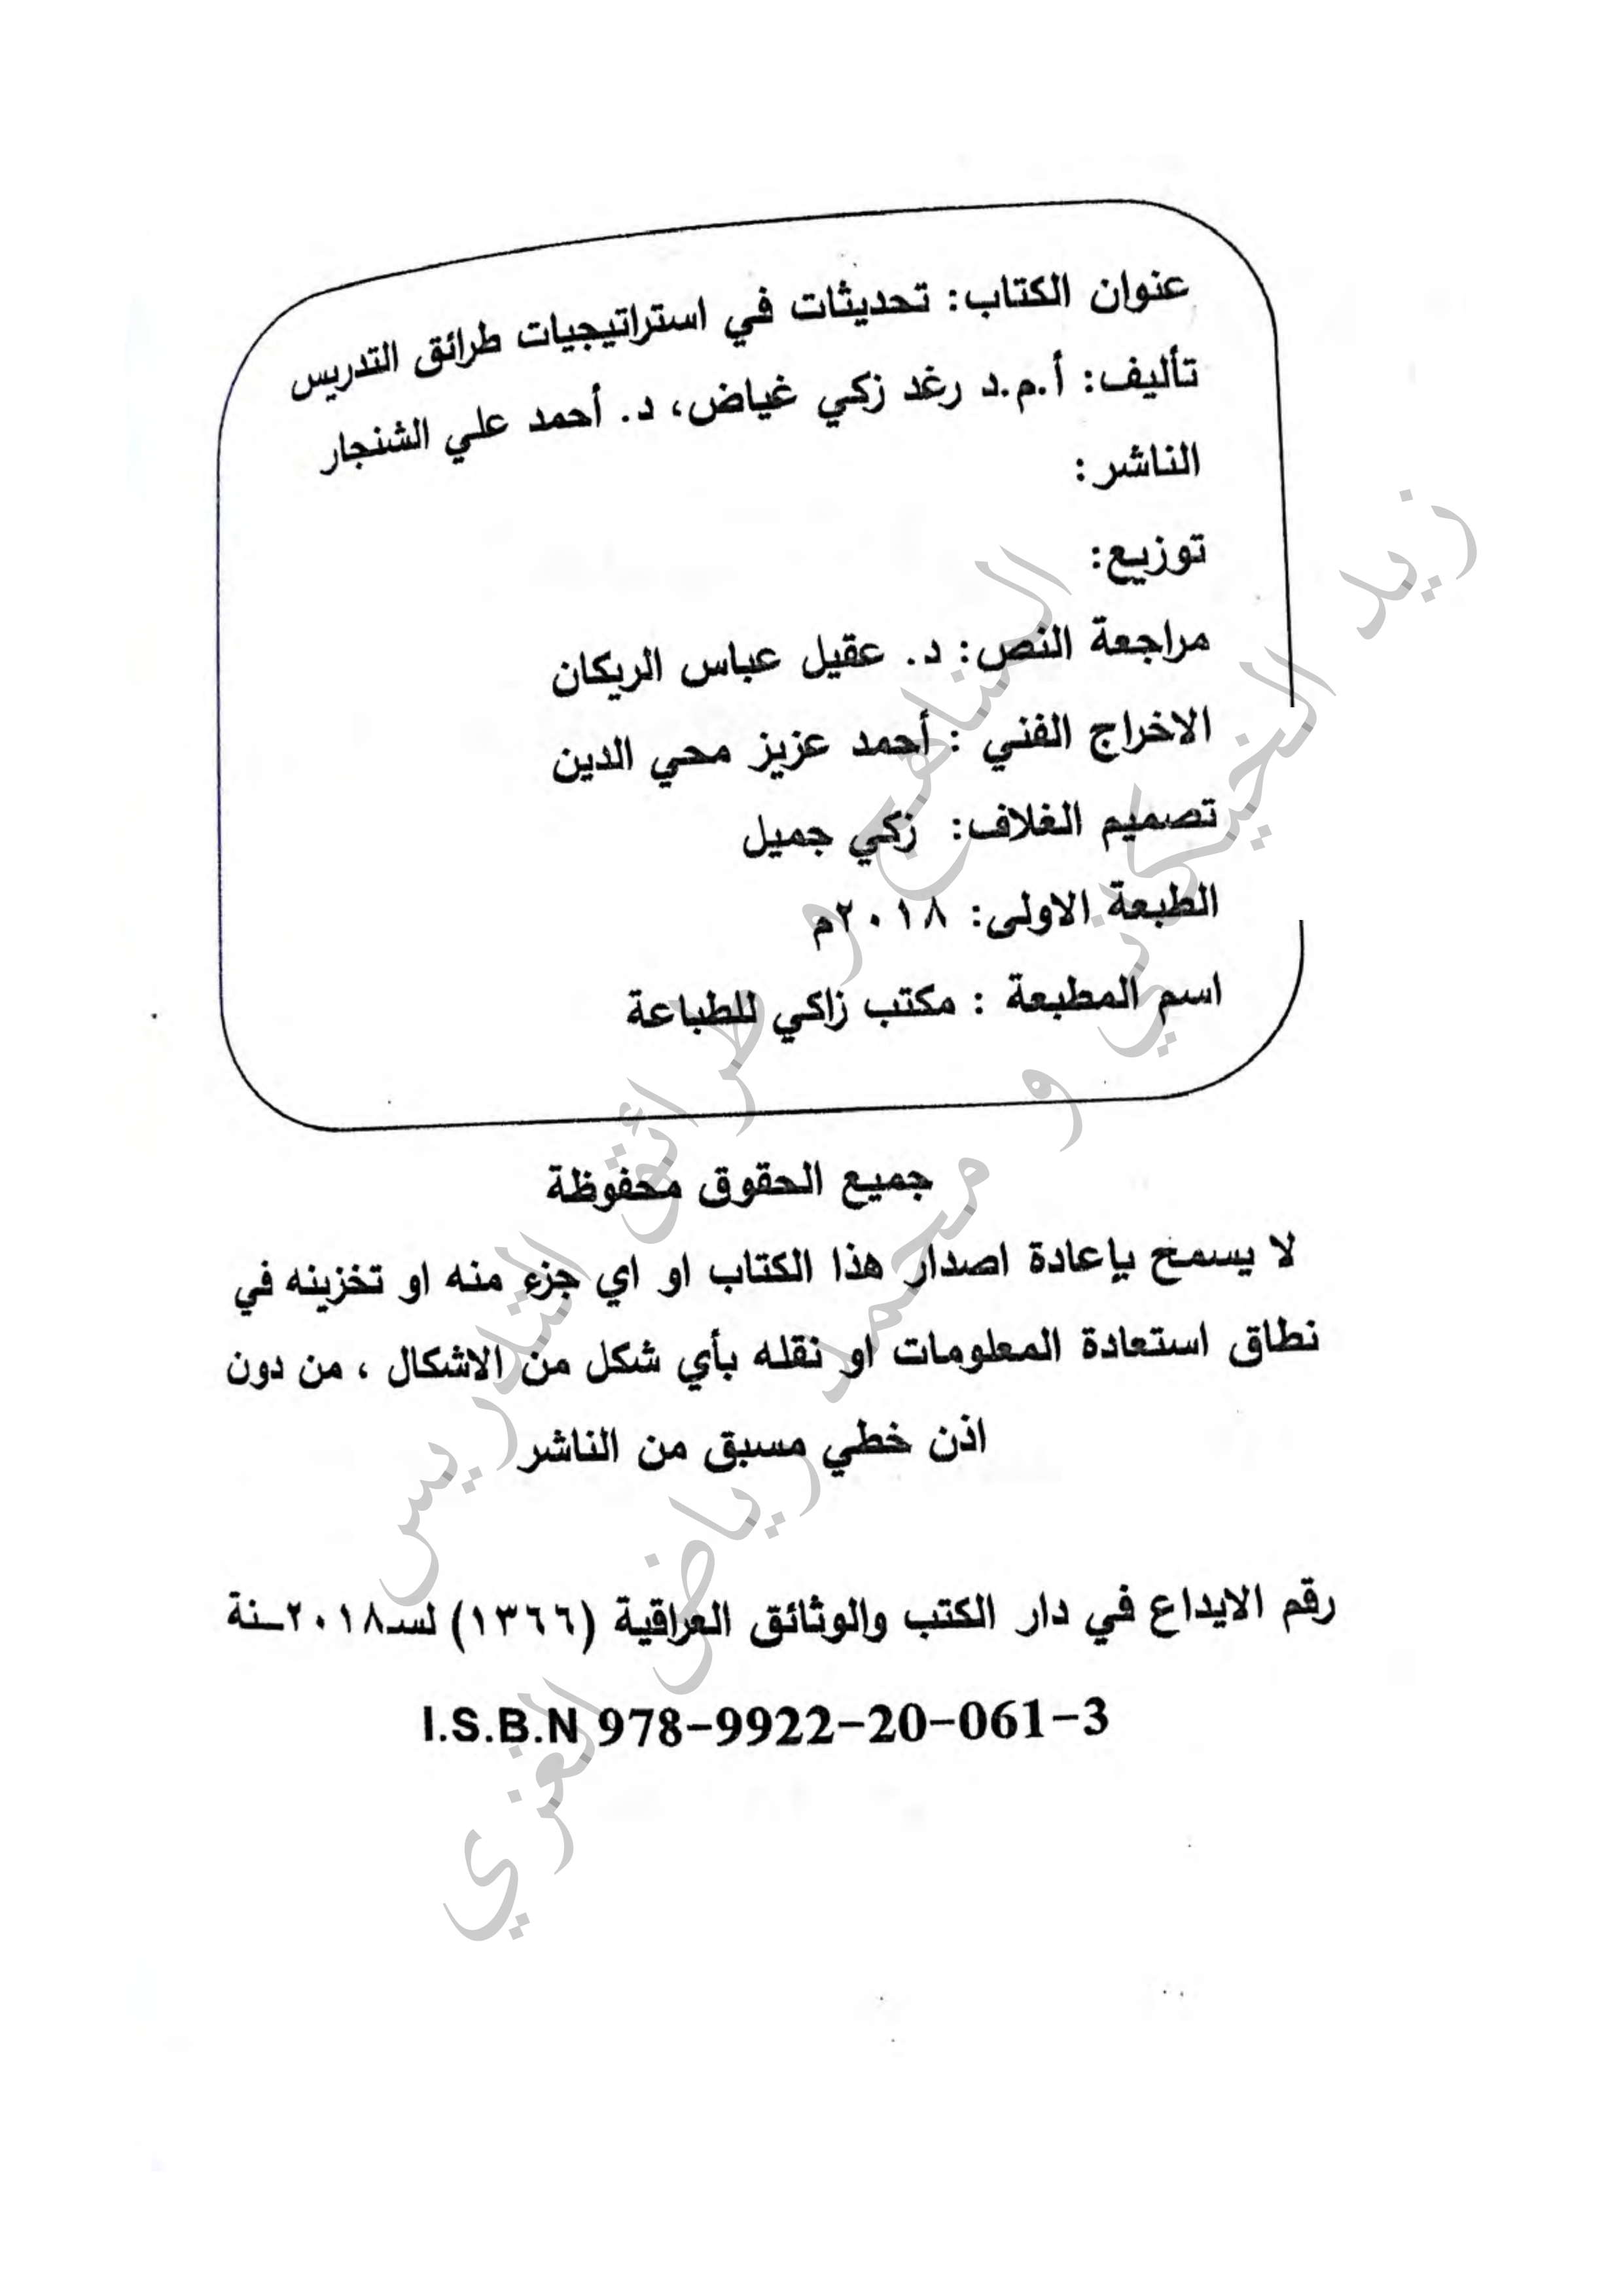 عنوان الكتاب: تحديثات في استراتيجيات طرائق التدريس
تأليف: أ.م.د رغد زكي غياض، د. أحمد علي الشنجار
الناشر:
توزيع:
مراجعة النص: د. عقيل عباس الريكان
الاخراج الفني : أحمد عزيز محي الدين
تصميم الغلاف: زكي جميل
الطبعة الاولى: ٢٠١٨م
اسم المطبعة : مكتب زاكي للطباعة
جميع الحقوق محفوظة
لا يسمح بإعادة اصدار هذا الكتاب او اي جزء منه او تخزينه في
نطاق استعادة المعلومات او نقله بأي شكل من الاشكال ، من دون
اذن خطي مسبق من الناشر
رقم الايداع في دار الكتب والوثائق العراقية (١٣٦٦) لسـ٢٠١٨ـنة
I.S.B.N 978-9922-20-061-3
المناهج و طرائق التدريس
زيد الخيكاني و محمد رياض الغزي